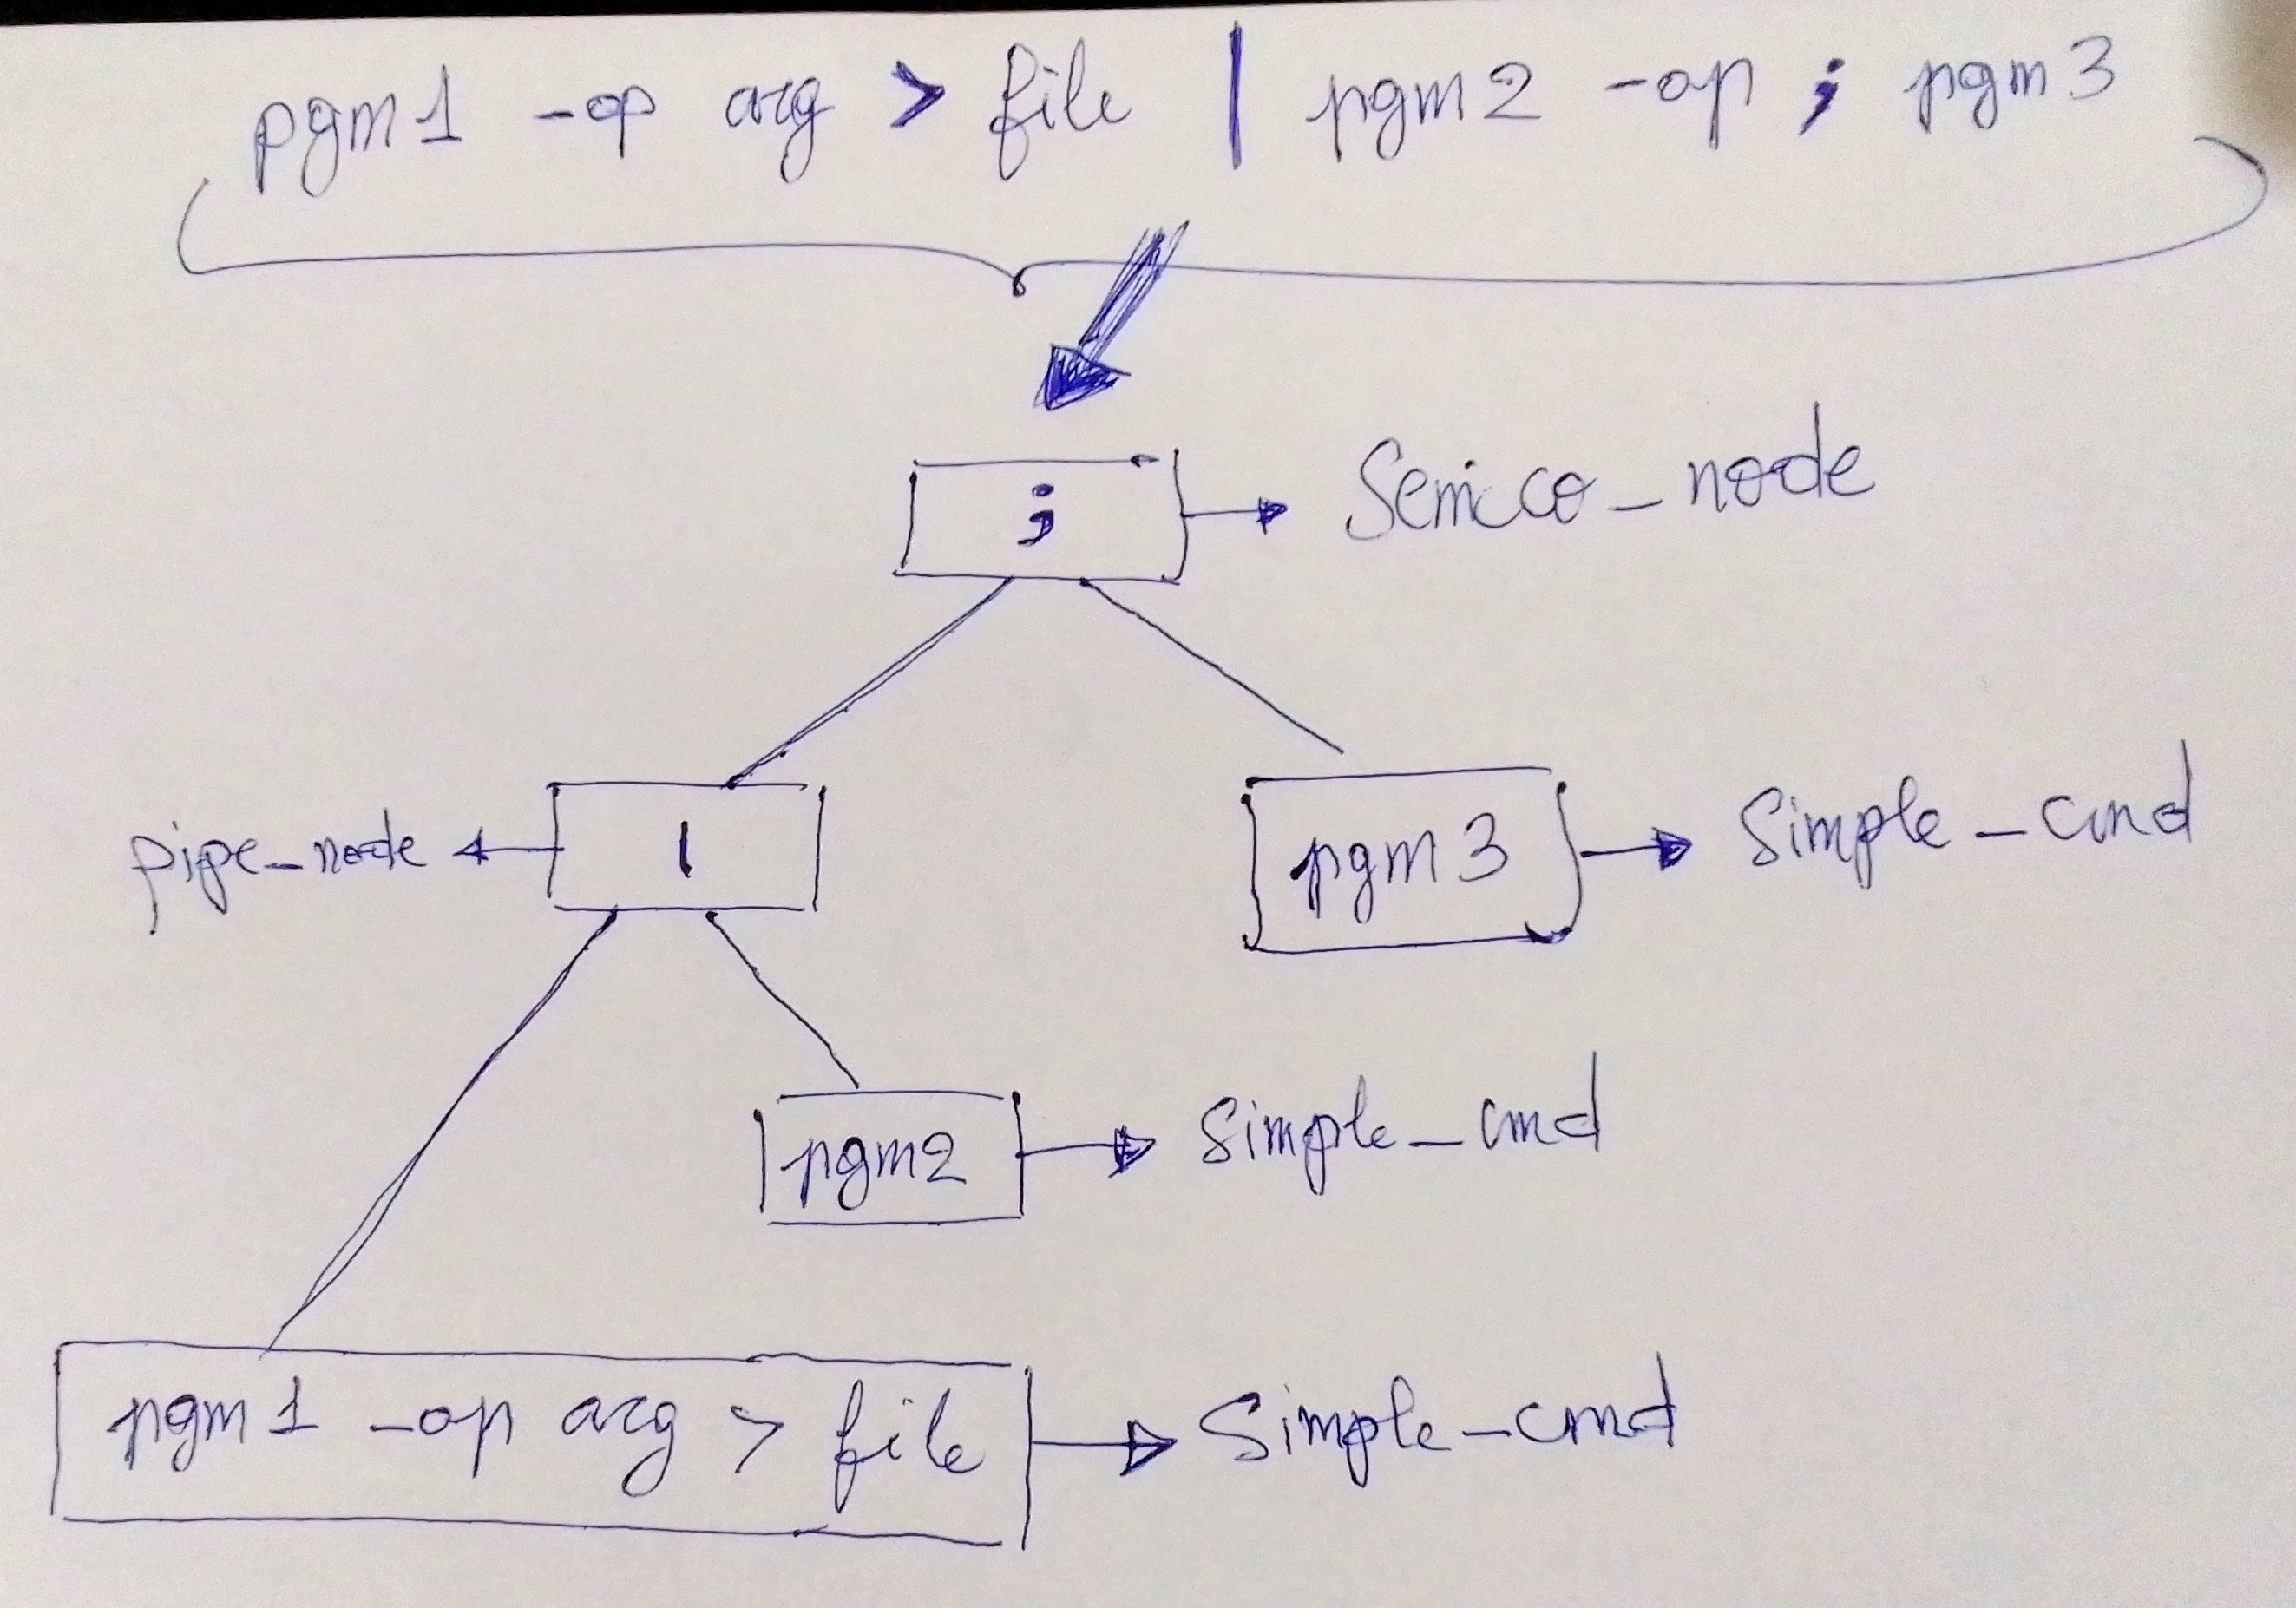 pgm1 -op arg > file | pgm2 -op ; pgm3
; Semico_node
pipe_node | pgm3 Simple_cmd
pgm2 Simple_cmd
pgm1 -op arg > file Simple_cmd